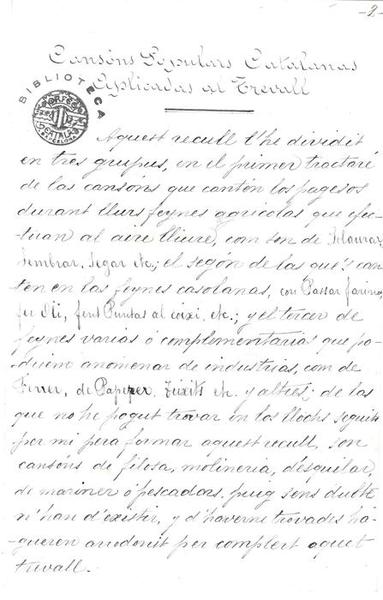 -2-
Cansóns Populars Catalanas
Aplicadas al Trevall
BIBLIOTECA
Aquest recull l'he dividit
en tres grupus, en el primer tractaré
de las cansóns que cantón los pagesos
durant llurs feynes agricolas que efec-
tuan al aire lliure, com son de Llaurar,
Sembrar, Segar etc; el segón de las que's can-
ten en las feynes casolanas, com Pastar farina,
fer Oli, fent Puntas al coixí, etc.; y el tercer de
feynes varias ó complimentarias que po-
driem anomenar de industrias, com de
Ferrer, de Paperer, Teixits etc. y altres; de las
que no he pogut trovar en los llochs seguits
per mi pera formar aquest recull, son
cansóns de filosa, molineria, d'esquilar,
de mariner ó pescadors, puig sens dubte
n'han d'existir, y d'haverne trovades ha-
gueren arrodonit per complert aquet
trevall.